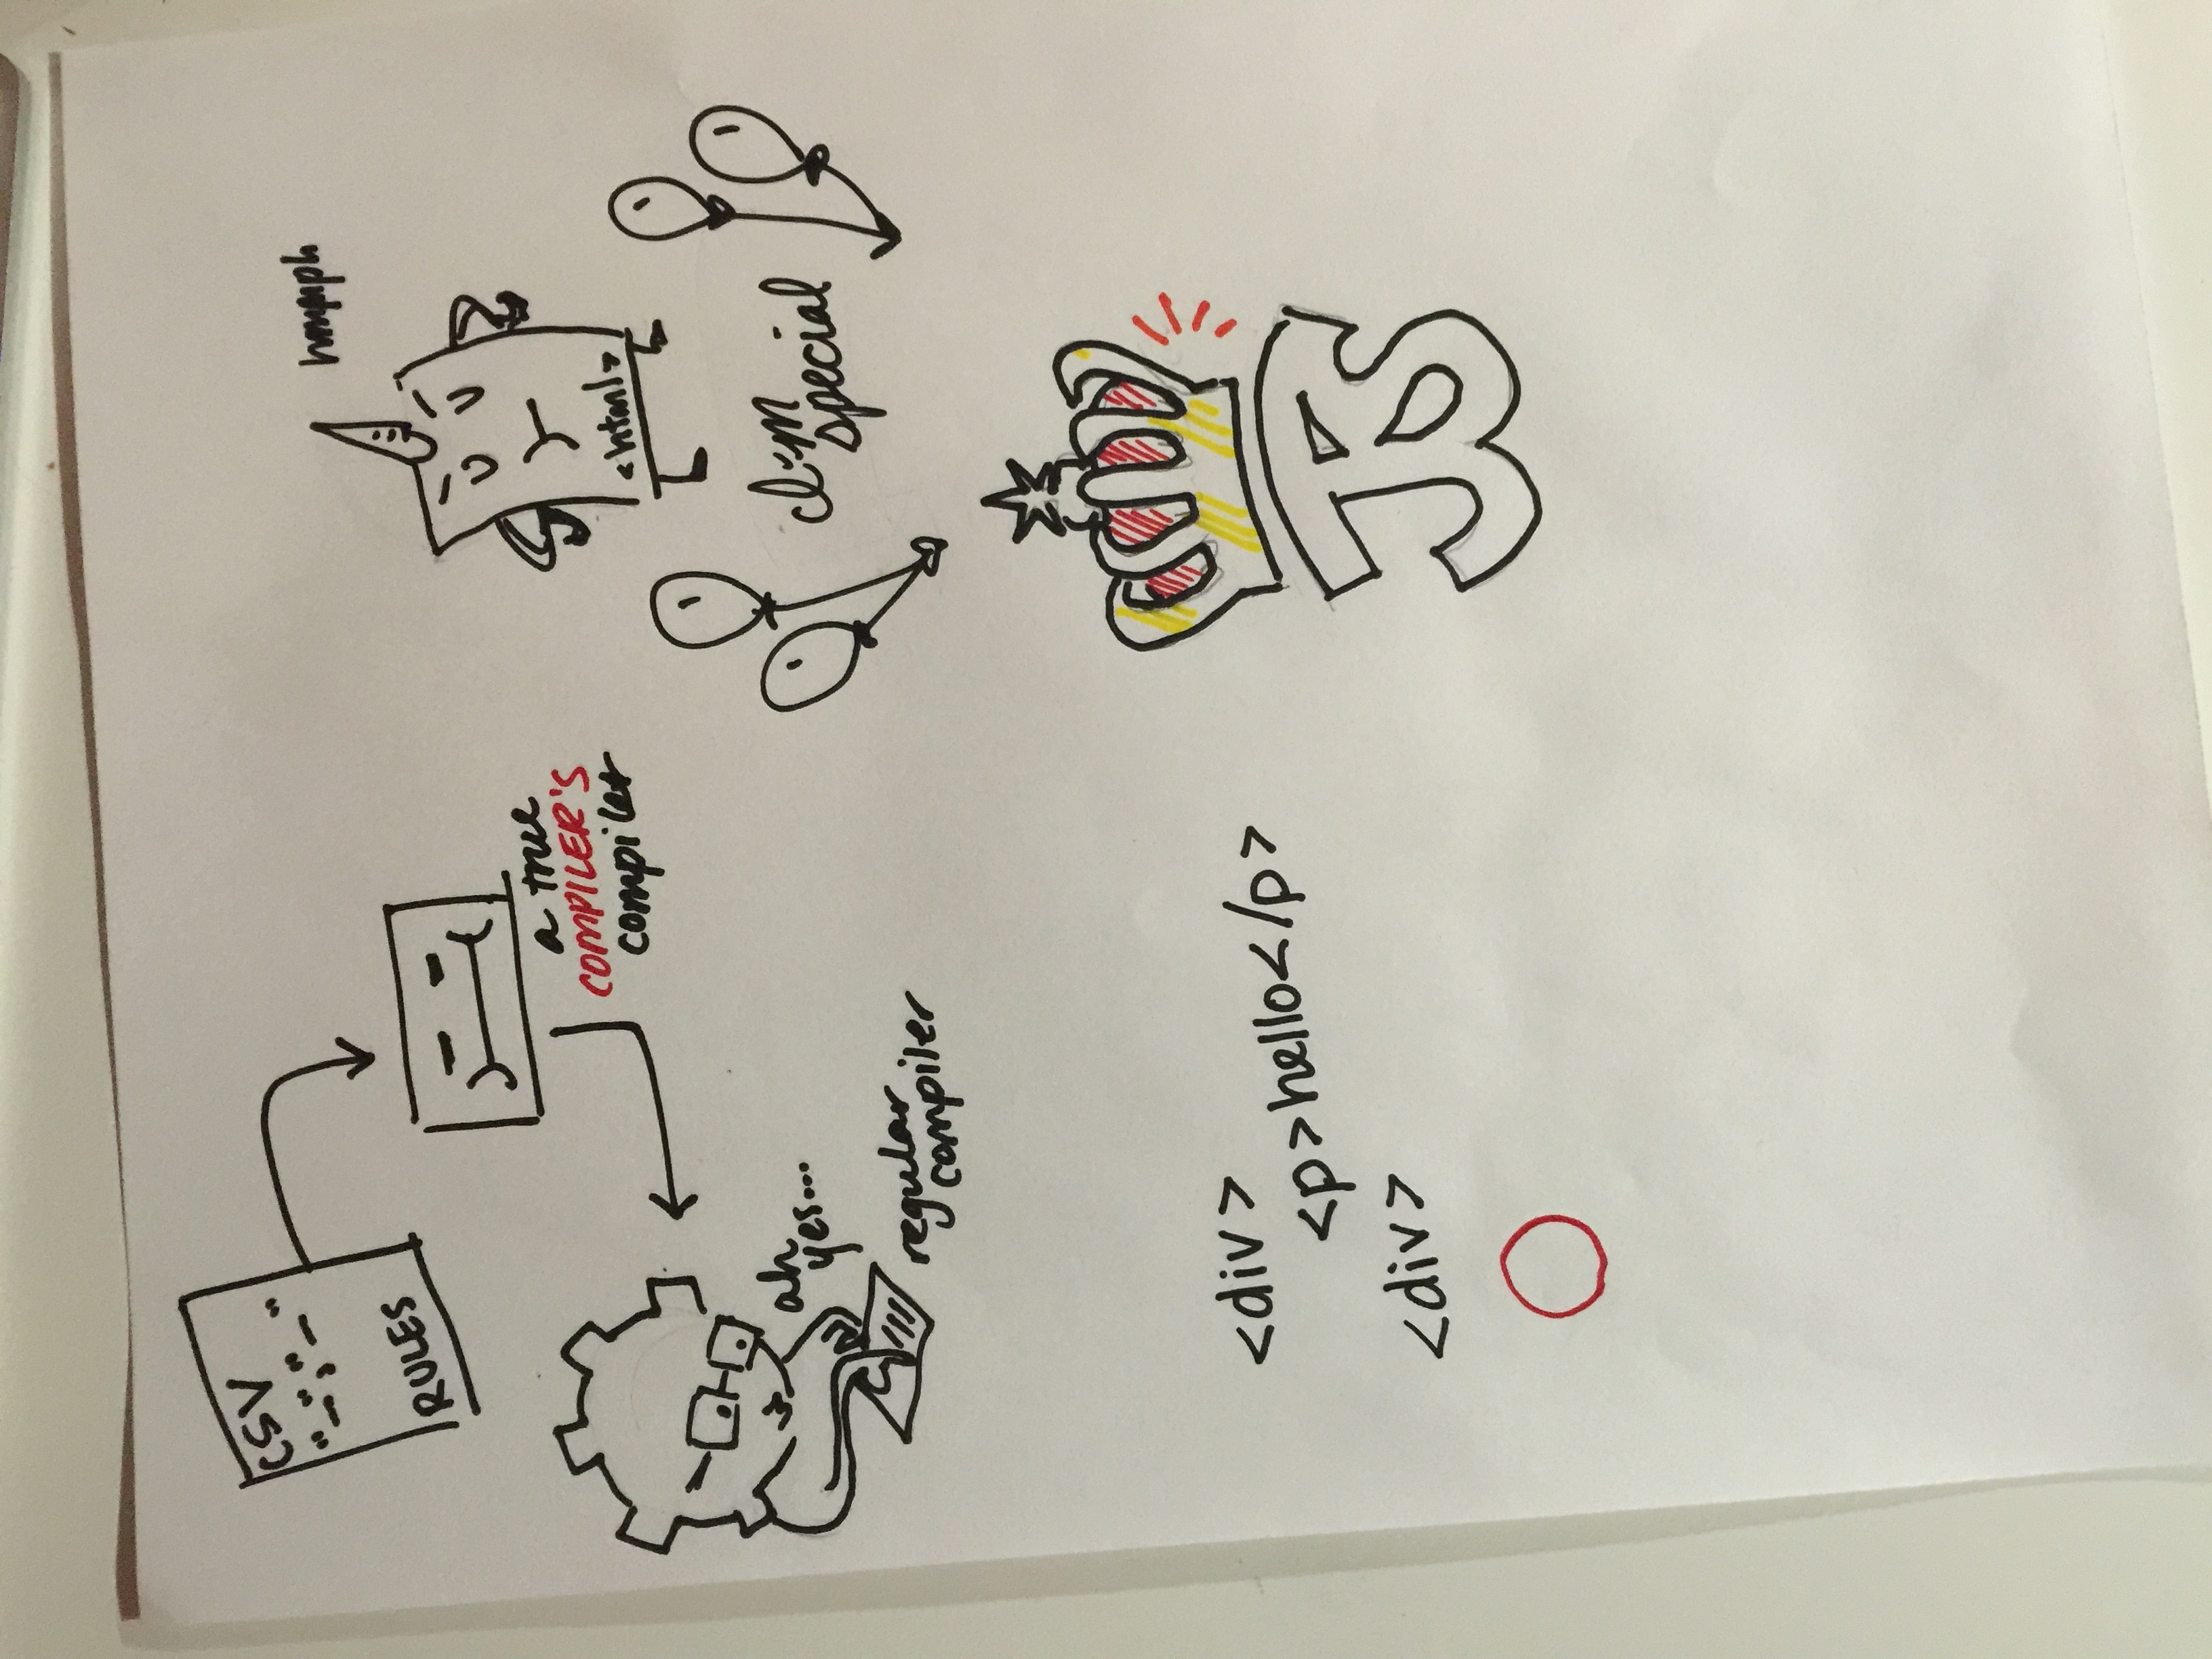 CSV
"_";"_"
RULES
a true
COMPILER'S
compiler
ah
yes...
regular
compiler
hmmph
<html>
I'm
special
<div>
<p>hello</p>
<div>
JS